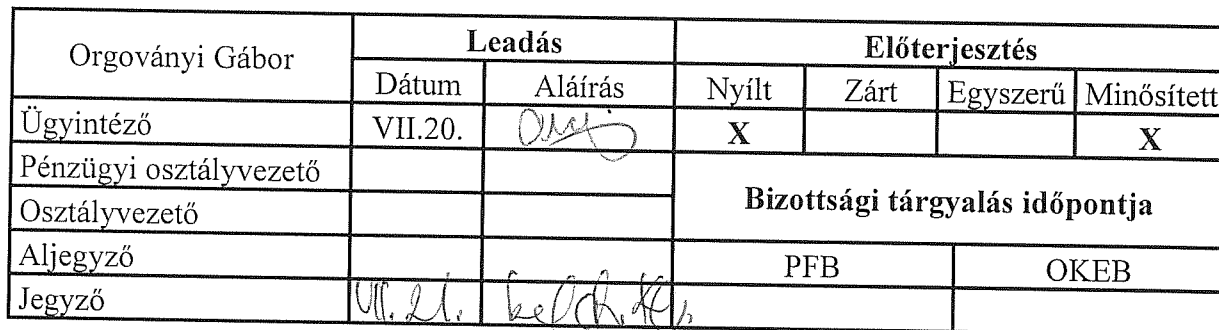 Orgoványi Gábor Leadás Előterjesztés
Dátum Aláírás Nyílt Zárt Egyszerű Minősített
Ügyintéző VII.20. X X
Pénzügyi osztályvezető
Bizottsági tárgyalás időpontja
Osztályvezető
Aljegyző PFB OKEB
Jegyző VII. 21.